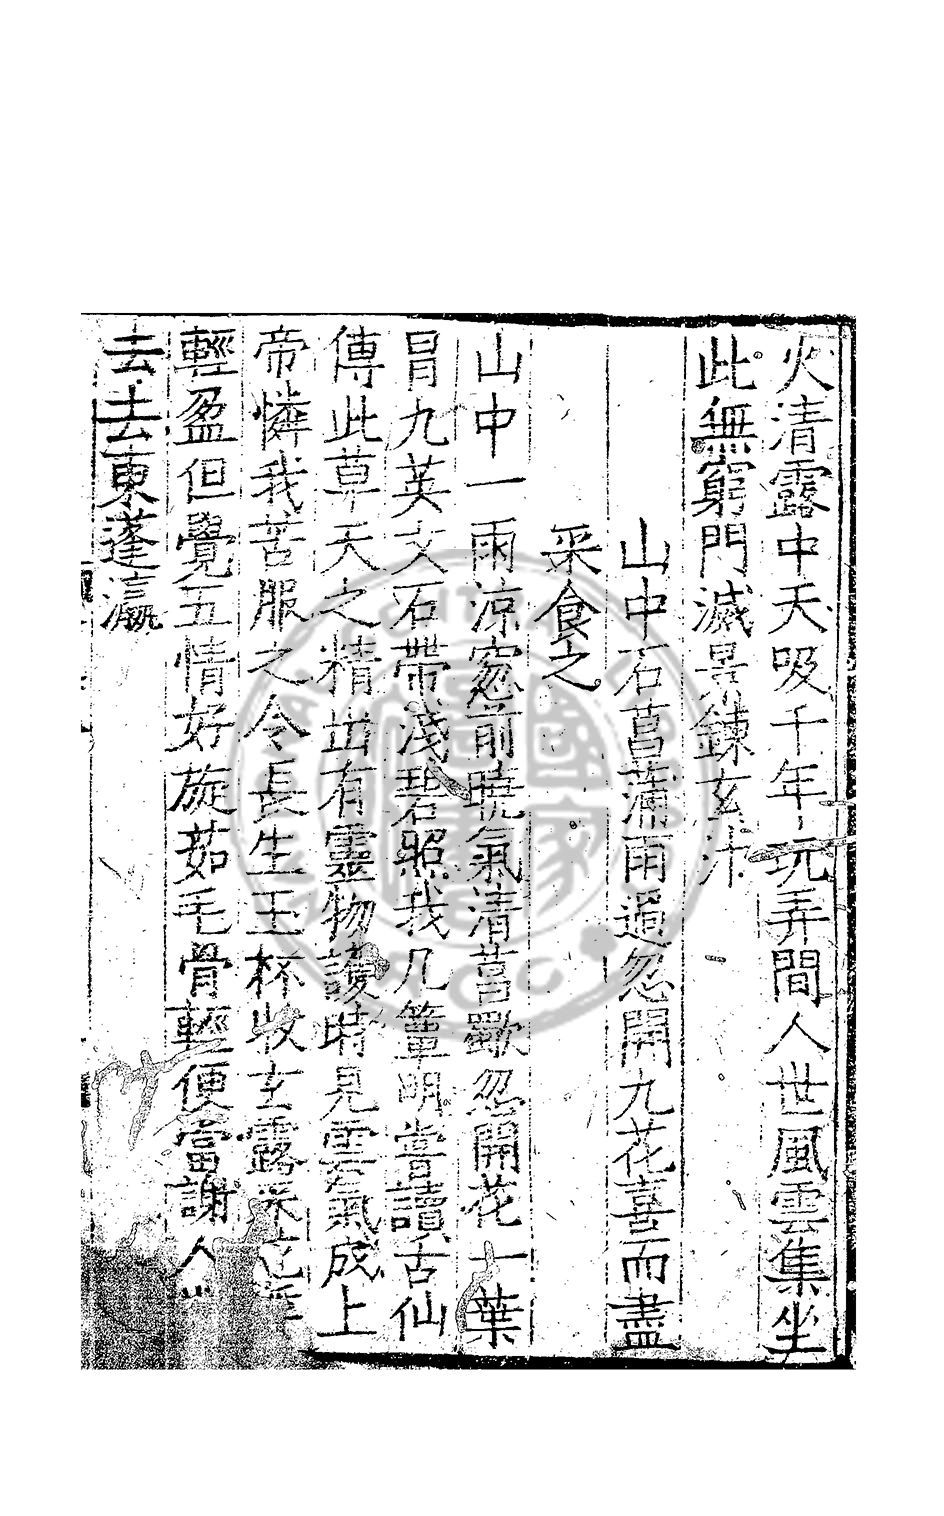 火清露中天吸千年玩弄間人世風雲集坐
此無窮門滅景鍊玄汁
山中石菖蒲雨過忽開九花喜而盡
采食之
山中一雨涼窓前曉氣清菖歜忽開花一葉
冒九英文石帶淺碧照我几簟明嘗讀古仙
傳此草天之精出有靈物護時見雲氣成上
帝憐我苦服之令長生玉杯收玄露采
輕盈但覺五情好旋茹毛骨輕便當謝人
去去東蓬瀛
國家圖書